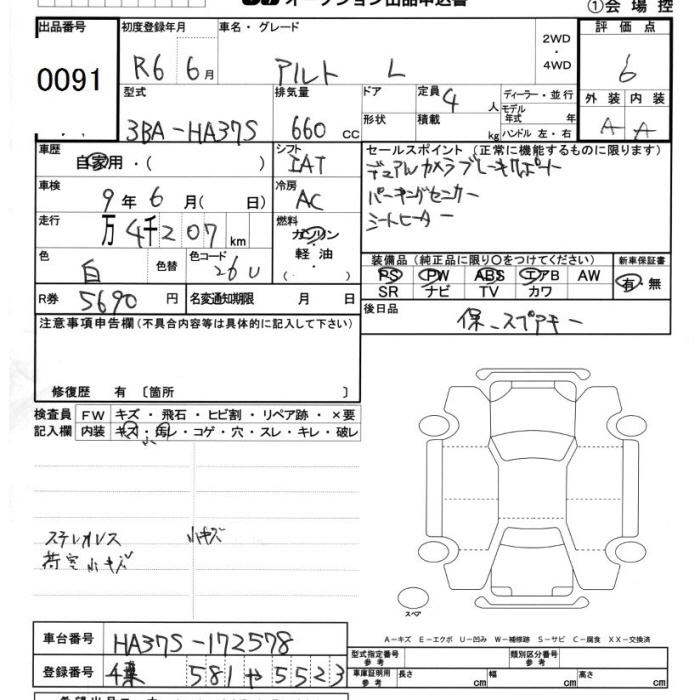 オークション出品申込書
①会場控
出品番号 0091
初度登録年月 R6 6月
車名・グレード アルト L
2WD・4WD
評価点 6
外装 A 内装 A
型式 3BA-HA37S
排気量 660 cc
ドア 形状
定員 4人 積載 kg
ディーラー・並行
モデル年式 年
ハンドル 左・右
車歴 自家用・( )
シフト IAT
セールスポイント(正常に機能するものに限ります)
デュアルカメラブレーキサポート
パーキングセンサー
シートヒーター
車検 9年 6月( 日)
冷房 AC
走行 万 4千207 km
燃料 ガソリン・軽油・( )
色 白 色替
色コード 26U
装備品(純正品に限り○をつけてください)
PS PW ABS エアB AW
SR ナビ TV カワ
新車保証書 有・無
R券 5690円
名変通知期限 月 日
後日品 保、スプアキー
注意事項申告欄(不具合内容等は具体的に記入して下さい)
修復歴 有〔箇所 〕
検査員記入欄
FW キズ・飛石・ヒビ割・リペア跡・×要
内装 キズ・汚レ・コゲ・穴・スレ・キレ・破レ
小
ステレオレス 小キズ
荷室小キズ
スペア
A-キズ E-エクボ U-凹み W-補修跡 S-サビ C-腐食 XX-交換済
車台番号 HA37S-172578
登録番号 581 や 5523
型式指定番号 参考
類別区分番号 参考
車庫証明用 参考 長さ cm 幅 cm 高さ cm